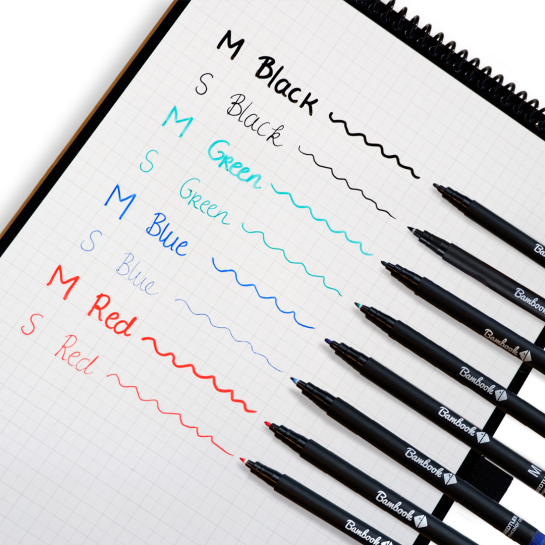 M Black
S Black
M Green
S Green
M Blue
S Blue
M Red
S Red
Bambook
Bambook
Bambook
Bambook
Bambook
Bambook
Bambook
M